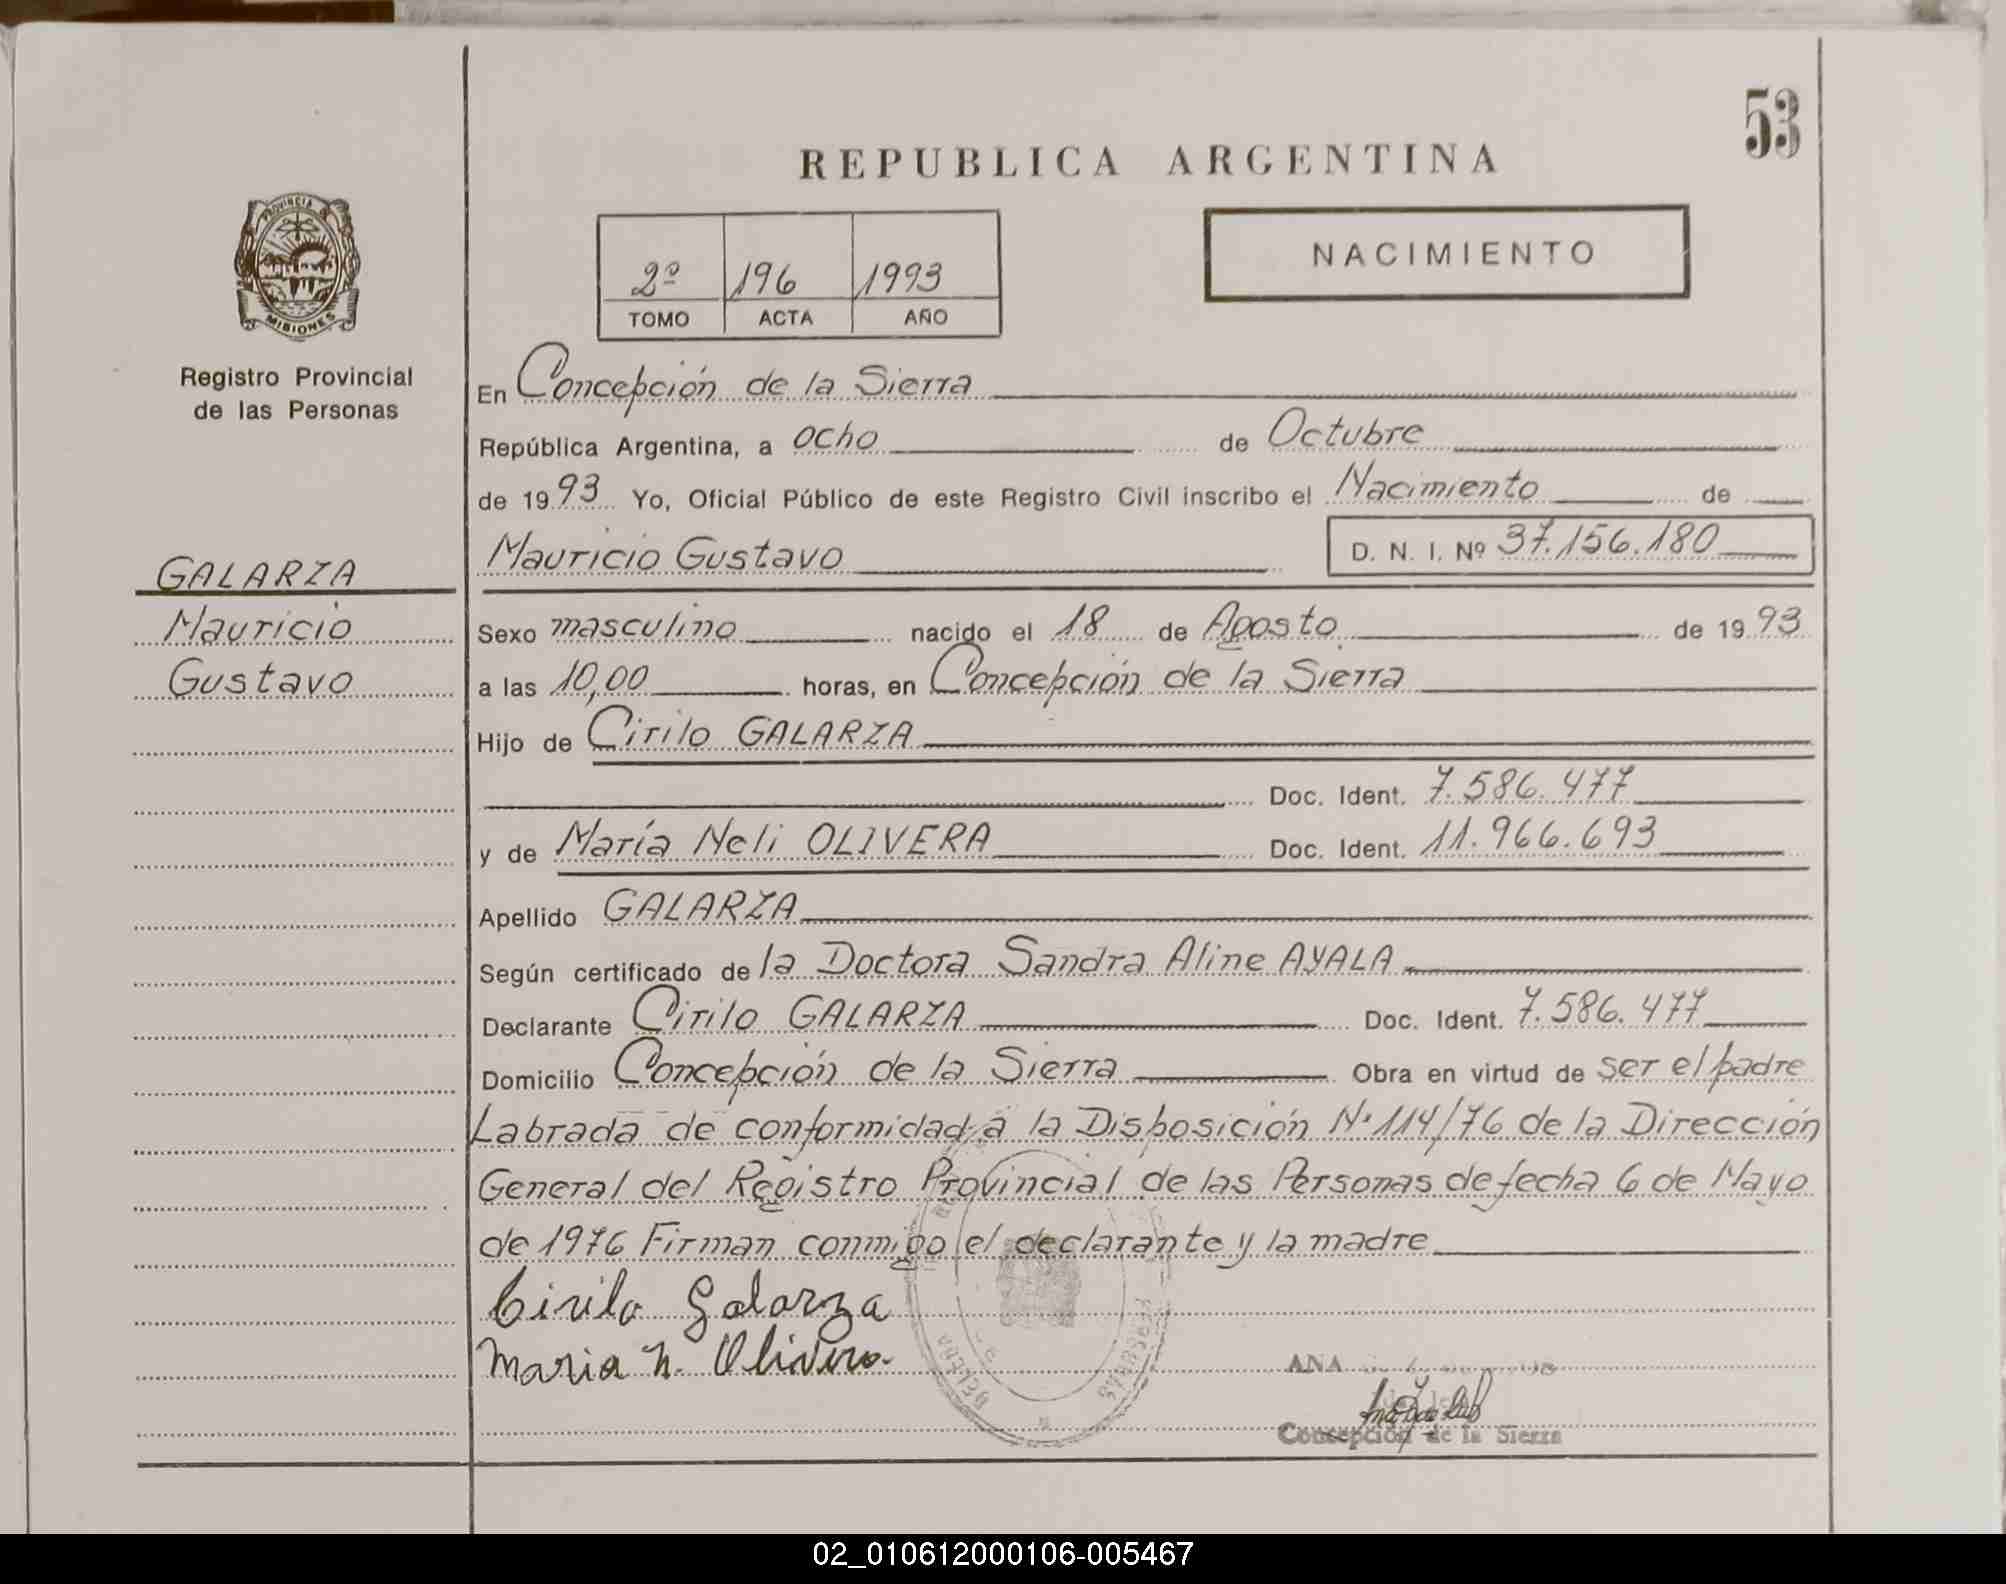 53
REPUBLICA ARGENTINA
PROVINCIA DE
MISIONES
Registro Provincial
de las Personas
NACIMIENTO
2º 196 1993
TOMO ACTA AÑO
En Concepción de la Sierra
República Argentina, a ocho de Octubre
de 1993 Yo, Oficial Público de este Registro Civil inscribo el Nacimiento de
Mauricio Gustavo D. N. I. Nº 37.156.180
GALARZA
Mauricio
Gustavo
Sexo masculino nacido el 18 de Agosto de 1993
a las 10,00 horas, en Concepción de la Sierra
Hijo de Cirilo GALARZA
Doc. Ident. 7.586.477
y de María Neli OLIVERA Doc. Ident. 11.966.693
Apellido GALARZA
Según certificado de la Doctora Sandra Aline AYALA
Declarante Cirilo GALARZA Doc. Ident. 7.586.477
Domicilio Concepción de la Sierra Obra en virtud de ser el padre
Labrada de conformidad a la Disposición Nº 114/76 de la Dirección
General del Registro Provincial de las Personas de fecha 6 de Mayo
de 1976 Firman conmigo el declarante y la madre
Cirilo Galarza
Maria N. Olivera
ANA
Concepción de la Sierra
02_010612000106-005467